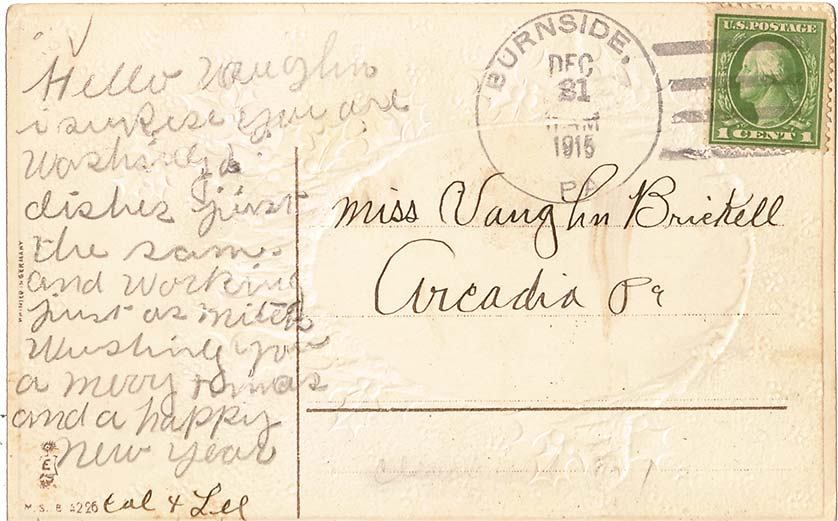 Hello Vaughn
i supese you are
washing
dishes just
the same
and working
just as mutch
Wushing you
a merry xmas
and a happy
New Year
Cal & Lee
BURNSIDE,
DEC
21
AM
1915
PA
U.S. POSTAGE
1 CENT 1
Miss Vaughn Brickell
Arcadia Pa
PRINTED IN GERMANY
E
M. S. B. 4226